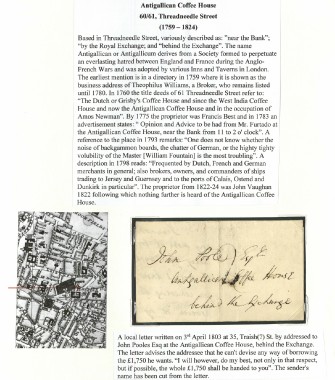 Antigallican Coffee House
60/61, Threadneedle Street
(1759 – 1824)
Based in Threadneedle Street, variously described as: "near the Bank";
"by the Royal Exchange; and "behind the Exchange". The name
Antigallican or Antigallicum derives from a Society formed to perpetuate
an everlasting hatred between England and France during the Anglo-
French Wars and was adopted by various Inns and Taverns in London.
The earliest mention is in a directory in 1759 where it is shown as the
business address of Theophilus Williams, a Broker, who remains listed
until 1780. In 1760 the title deeds of 61 Threadneedle Street refer to:
"The Dutch or Grisby's Coffee House and since the West India Coffee
House and now the Antigallican Coffee House and in the occupation of
Amos Newman". By 1775 the proprietor was Francis Best and in 1783 an
advertisement states: " Opinion and Advice to be had from Mr. Furtado at
the Antigallican Coffee House, near the Bank from 11 to 2 o'clock". A
reference to the place in 1793 remarks: "One does not know whether the
noise of backgammon boards, the chatter of German, or the highty tighty
volubility of the Master [William Fountain] is the most troubling". A
description in 1798 reads: "Frequented by Dutch, French and German
merchants in general; also brokers, owners, and commanders of ships
trading to Jersey & Guernsey and to the ports of Calais, Ostend and
Dunkirk in particular". The proprietor from 1822-24 was John Vaughan
1822 following which nothing further is heard of the Antigallican Coffee
House.
John Pooles Esqr
Antigallican Coffee House
behind the Exchange
A local letter written on 3rd April 1803 at 35, Traish(?) St. by addressed to
John Pooles Esq at the Antigallican Coffee House, behind the Exchange.
The letter advises the addressee that he can't devise any way of borrowing
the £1,750 he wants. "I will however, do my best, not only in that respect,
but if possible, the whole £1,750 shall be handed to you". The sender's
name has been cut from the letter.